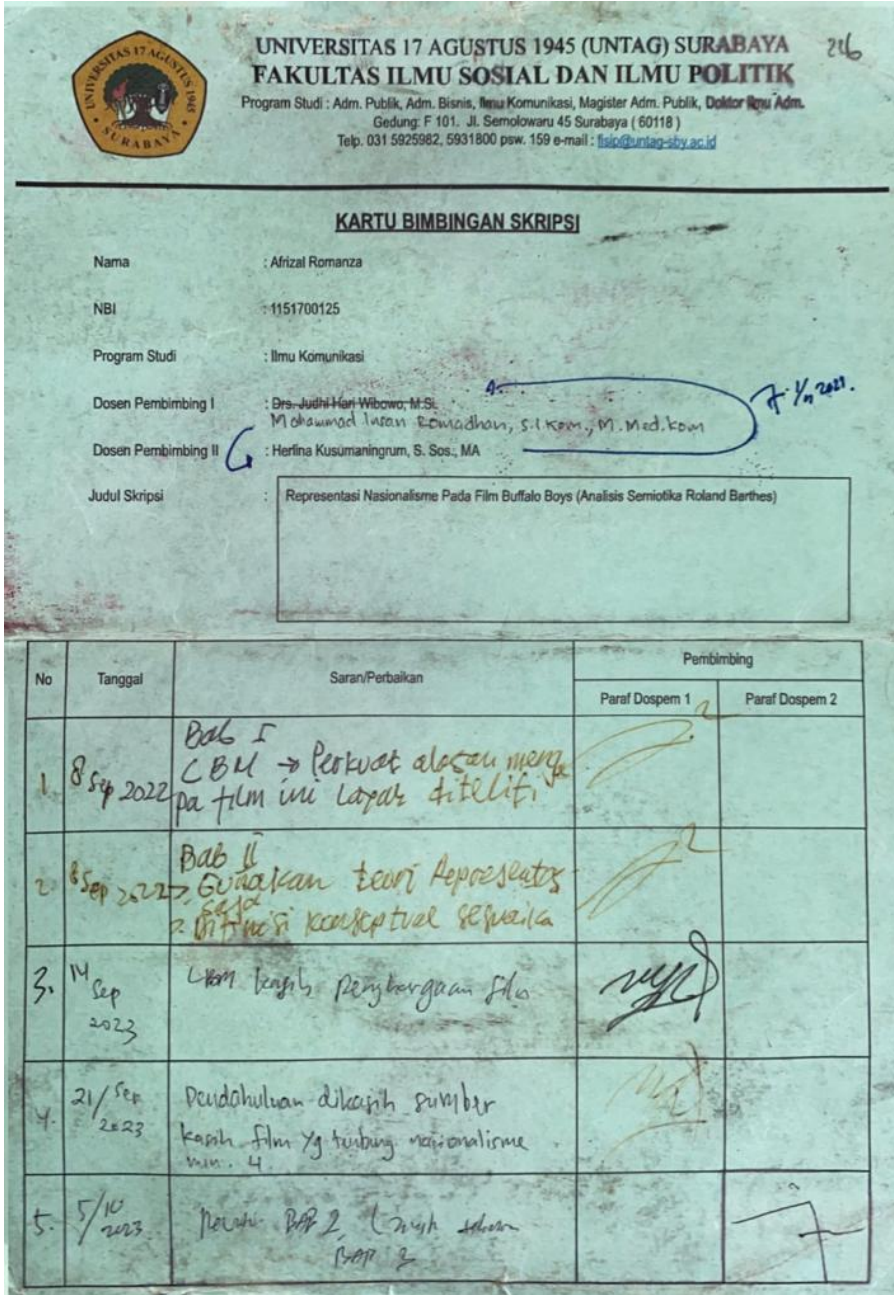 UNIVERSITAS 17 AGUSTUS 1945 (UNTAG) SURABAYA
FAKULTAS ILMU SOSIAL DAN ILMU POLITIK
Program Studi : Adm. Publik, Adm. Bisnis, Ilmu Komunikasi, Magister Adm. Publik, Doktor Ilmu Adm.
Gedung: F 101. Jl. Semolowaru 45 Surabaya ( 60118 )
Telp. 031 5925982, 5931800 psw. 159 e-mail : fisip@untag-sby.ac.id
UNIVERSITAS 17 AGUSTUS 1945
SURABAYA
KARTU BIMBINGAN SKRIPSI
Nama : Afrizal Romanza
NBI : 1151700125
Program Studi : Ilmu Komunikasi
Dosen Pembimbing I : Drs. Judhi Hari Wibowo, M.Si.
Mohammad Insan Romadhan, S.I.Kom., M.Med.Kom
Dosen Pembimbing II : Herlina Kusumaningrum, S. Sos., MA
Judul Skripsi : Representasi Nasionalisme Pada Film Buffalo Boys (Analisis Semiotika Roland Barthes)
No Tanggal Saran/Perbaikan Pembimbing
Paraf Dospem 1 Paraf Dospem 2
1 8 Sep 2022 Bab I
LBM → Perkuat alasan menga
pa film ini layak diteliti
2 8 Sep 2022 Bab II
Gunakan teori Representas
saja
Definisi konseptual sesuaika
3. 14 Sep 2023 LBM kasih penghargaan film
4. 21/Sep 2023 Pendahuluan dikasih sumber
kasih film yg nasionalisme
min. 4
5. 5/10 2023 BAB 2
BAB 3